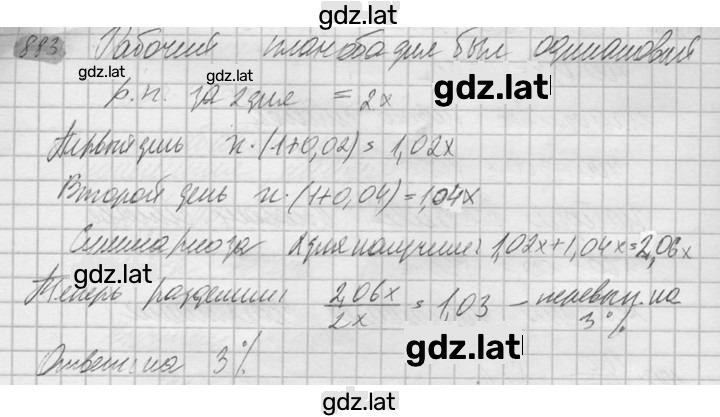 gdz.lat
893. Рабочий план оба дня был одинаковый
gdz.lat
gdz.lat
р.п. за 2 дня = 2x
gdz.lat
Первый день x·(1+0,02)=1,02x
Второй день x·(1+0,04)=1,04x
Суммарно за 2 дня получили: 1,02x+1,04x=2,06x
gdz.lat
Теперь разделим: 2,06x/2x = 1,03 – перевып. на 3%
gdz.lat
Ответ: на 3%
gdz.lat